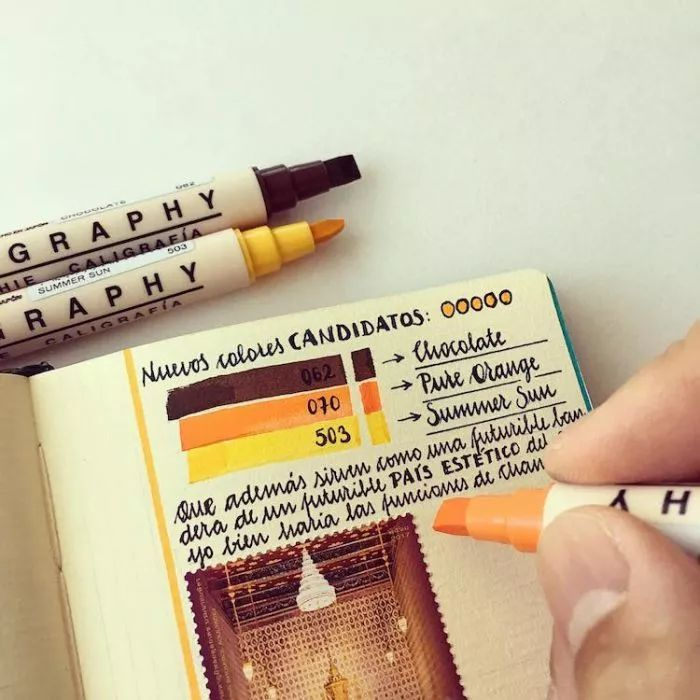 CHOCOLATE 062
GRAPHY
HIE CALIGRAFÍA
SUMMER SUN 503
RAPHY
E CALIGRAFÍA
Nuevos colores CANDIDATOS:
062 → Chocolate
070 → Pure Orange
503 → Summer Sun
Que además sirven como una futurible ban
dera de un futurible PAÍS ESTÉTICO del
yo bien haría las funciones de
HY
2017